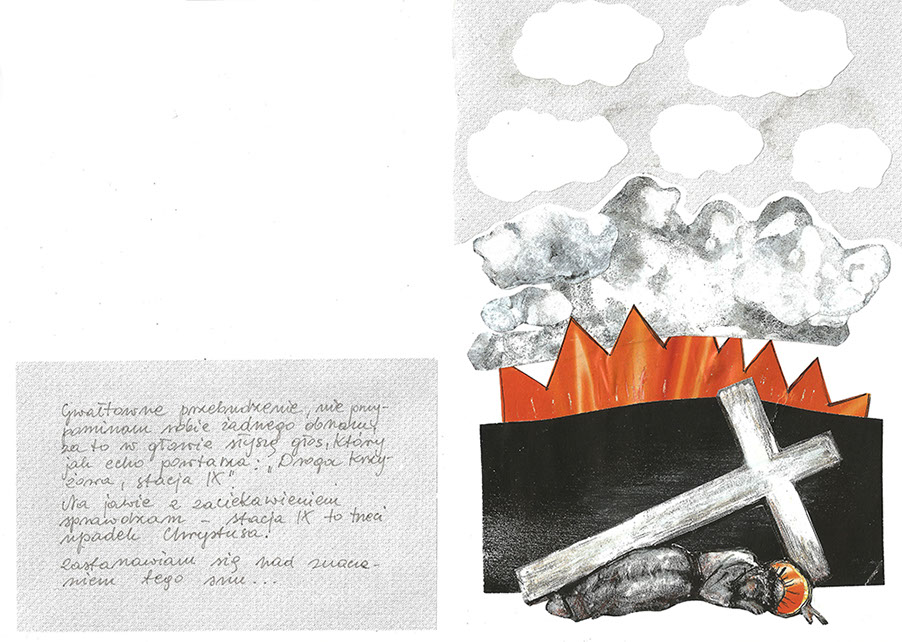 Gwałtowne przebudzenie, nie przy-
pominam sobie żadnego obrazu,
za to w głowie słyszę głos, który
jak echo powtarza: „Droga Krzy-
żowa, stacja IX".
Na jawie z zaciekawieniem
sprawdzam – stacja IX to trzeci
upadek Chrystusa.
Zastanawiam się nad znacze-
niem tego snu...